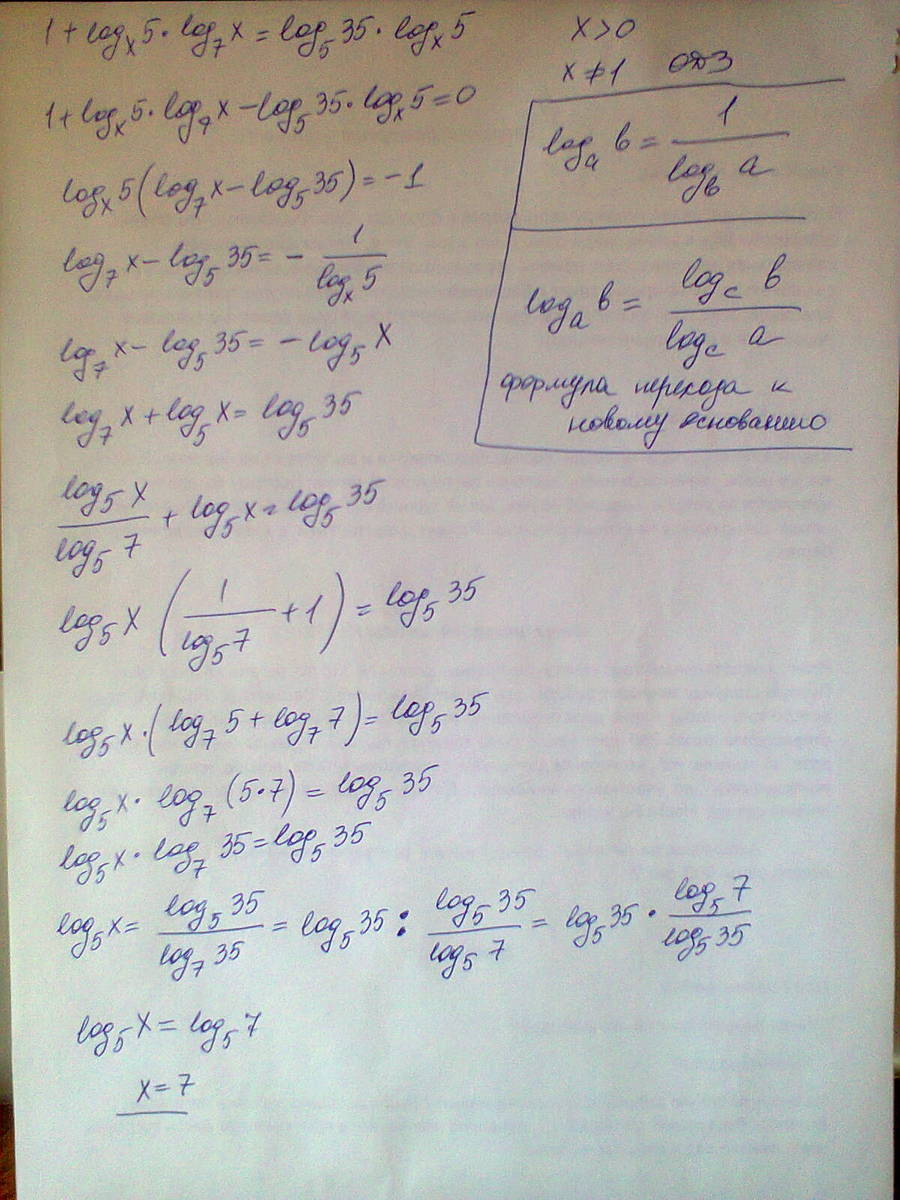 1 + log_x 5 · log_7 x = log_5 35 · log_x 5
x > 0
x ≠ 1 ОДЗ
1 + log_x 5 · log_7 x − log_5 35 · log_x 5 = 0
log_x 5 (log_7 x − log_5 35) = −1
log_7 x − log_5 35 = − 1 / log_x 5
log_7 x − log_5 35 = − log_5 x
log_7 x + log_5 x = log_5 35
log_a b = 1 / log_b a
log_a b = log_c b / log_c a
формула перехода к
новому основанию
log_5 x / log_5 7 + log_5 x = log_5 35
log_5 x (1 / log_5 7 + 1) = log_5 35
log_5 x · (log_7 5 + log_7 7) = log_5 35
log_5 x · log_7 (5·7) = log_5 35
log_5 x · log_7 35 = log_5 35
log_5 x = log_5 35 / log_7 35 = log_5 35 : log_5 35 / log_5 7 = log_5 35 · log_5 7 / log_5 35
log_5 x = log_5 7
x = 7